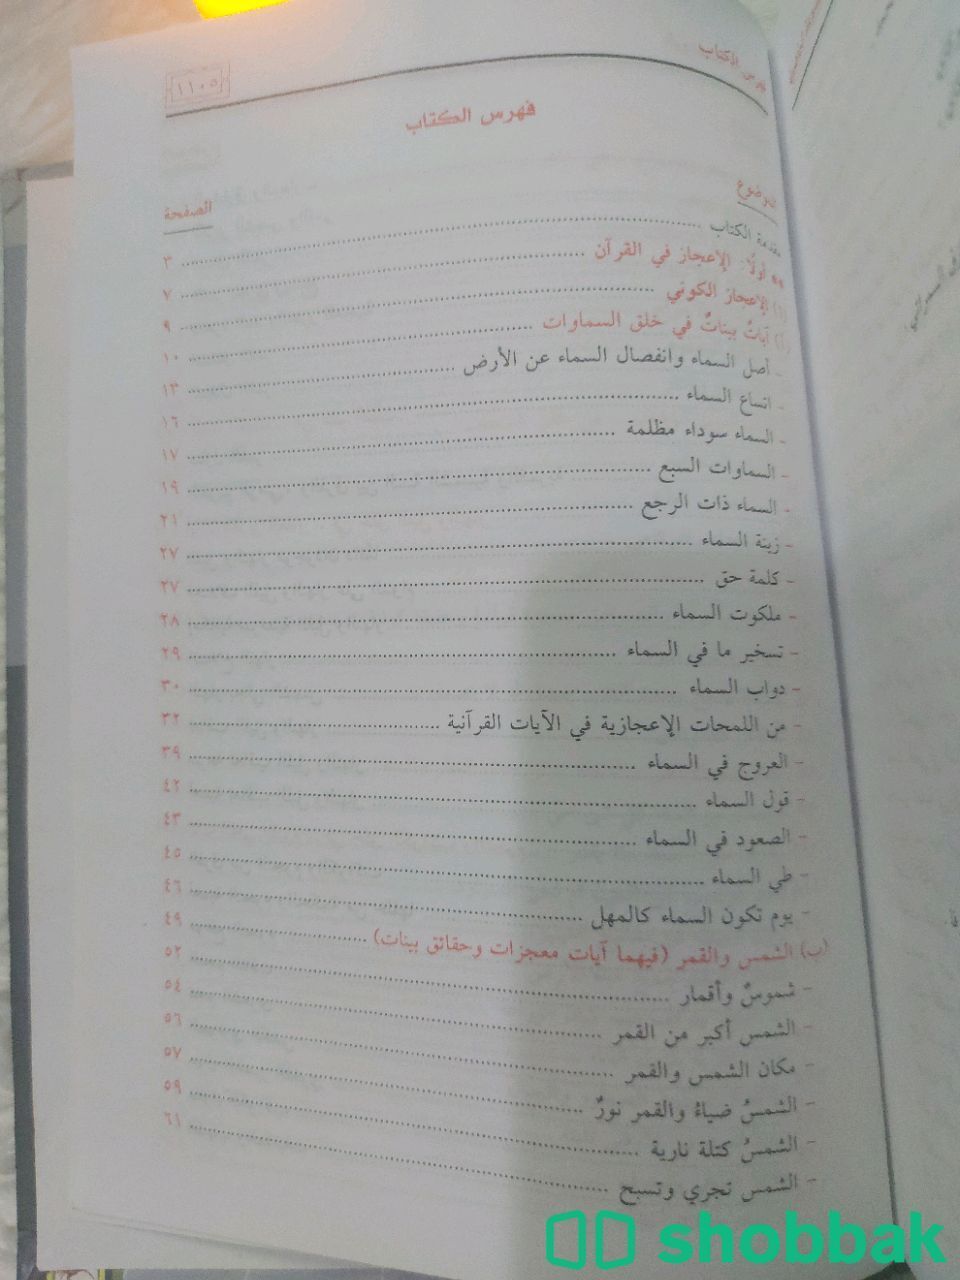 فهرس الكتاب
١١٠٥
فهرس الكتاب
الموضوع
الصفحة
مقدمة الكتاب ........ ٣
** أولًا: الإعجاز في القرآن ........ ٧
(١) الإعجاز الكوني ........ ٩
(أ) آياتٌ بيناتٌ في خلق السماوات ........ ١٠
- أصل السماء وانفصال السماء عن الأرض ........ ١٣
- اتساع السماء ........ ١٦
- السماء سوداء مظلمة ........ ١٧
- السماوات السبع ........ ١٩
- السماء ذات الرجع ........ ٢١
- زينة السماء ........ ٢٧
- كلمة حق ........ ٢٧
- ملكوت السماء ........ ٢٨
- تسخير ما في السماء ........ ٢٩
- دواب السماء ........ ٣٠
- من اللمحات الإعجازية في الآيات القرآنية ........ ٣٢
- العروج في السماء ........ ٣٩
- قول السماء ........ ٤٢
- الصعود في السماء ........ ٤٣
- طي السماء ........ ٤٥
- يوم تكون السماء كالمهل ........ ٤٦
(ب) الشمس والقمر (فيهما آيات معجزات وحقائق بينات) ........ ٤٩
- شموسٌ وأقمار ........ ٥٢
- الشمس أكبر من القمر ........ ٥٤
- مكان الشمس والقمر ........ ٥٦
- الشمسُ ضياءٌ والقمر نورٌ ........ ٥٧
- الشمسُ كتلة نارية ........ ٥٩
- الشمس تجري وتسبح ........ ٦١
shobbak